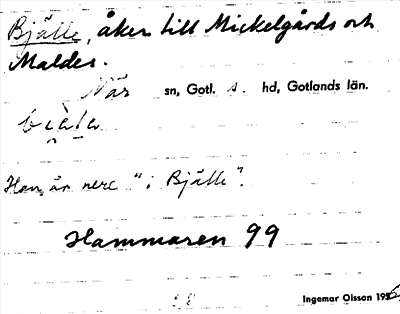 Bjälle, åker till Mickelgårds och
Maldes.
När sn, Gotl. s. hd, Gotlands län.
Han är nere "i Bjälle".
Hammaren 99
Ingemar Olsson 1956